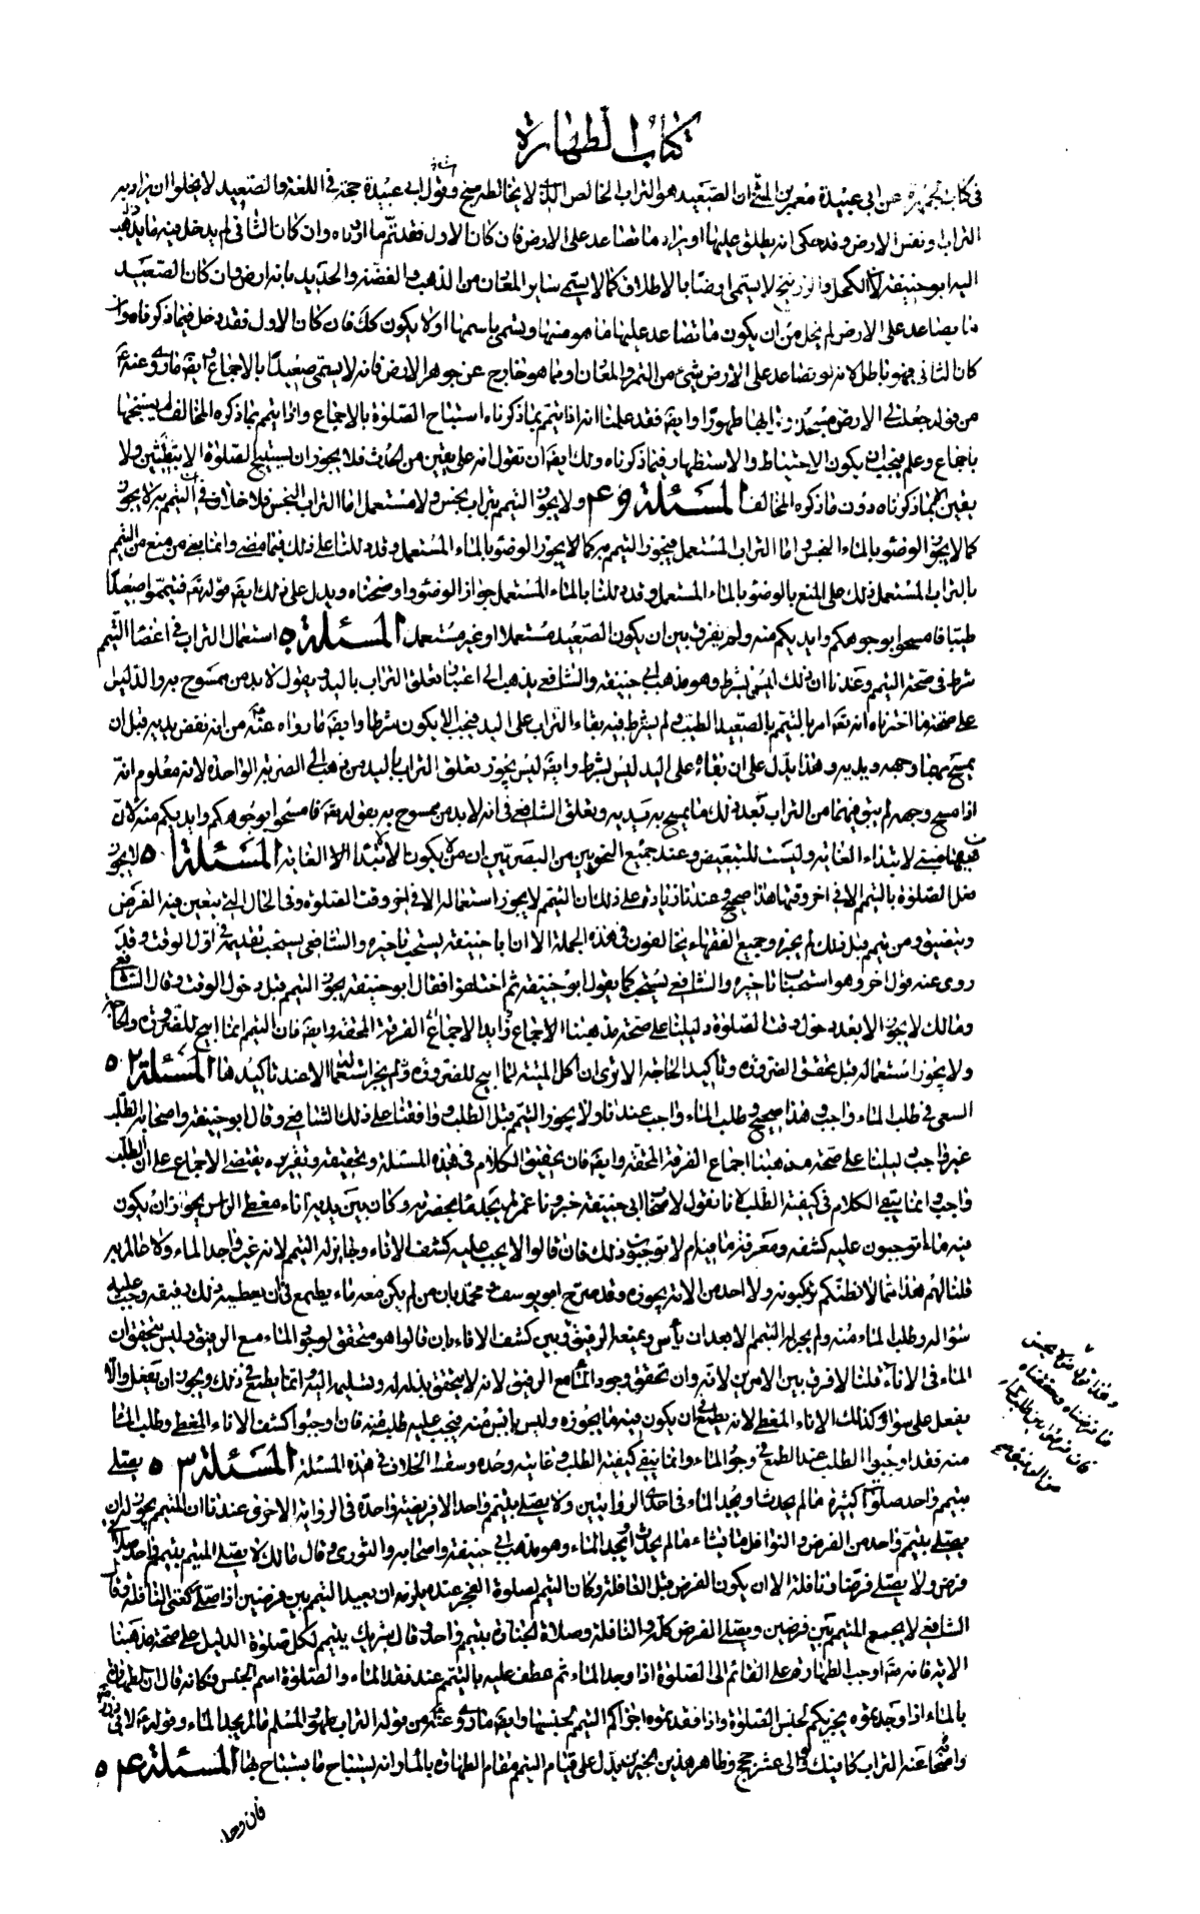 كتاب الطهارة
في كتاب الجمهرة عن أبي عبيدة معمر بن المثنى ان الصعيد هو التراب الخالص الذي لا يخالطه سبخ وقول ابي عبيدة حجة في اللغة والصعيد لا يخلوا ان يراد به
التراب او نفس الارض وقد حكى انه يطلق عليها او يراد ما تصاعد على الارض فان كان الاول فقد تم ما اردناه وان كان الثاني لم يدخل فيه ما يذهب
اليه ابو حنيفة لان الكحل والزرنيخ لا يسمى ارضا بالاطلاق كما لا يسمى ساير المعادن من الذهب والفضة والحديد بانه ارض وان كان الصعيد
ما تصاعد على الارض لم يخل من ان يكون ما تصاعد عليها ما هو منها ويسمى باسمها اولا يكون كك فان كان الاول فقد دخل فيما ذكرناه وان
كان الثاني فهو باطل لانه لو تصاعد على الارض شيء من الثمر والمعادن او مما هو خارج عن جوهر الارض فانه لا يسمى صعيدا بالاجماع وايضا ما روى عنه ع
من قوله جعلت لي الارض مسجدا وترابها طهورا وايضا فقد علمنا انه اذا تيمم بما ذكرناه استباح الصلوة بالاجماع واذا تيمم بما ذكره المخالف لم يستبحها
باجماع وعلم فيجب ان يكون الاحتياط والاستظهار فيما ذكرناه ولك ايضا ان تقول انه على يقين من الحدث فلا يجوز ان يستبيح الصلوة الا بيقين ولا
يقين الا بما ذكرناه دون ما ذكره المخالف المسئلة ٤٩ ولا يجوز التيمم بتراب نجس ولا مستعمل اما التراب النجس فلا خلاف في ان التيمم به لا يجوز
كما لا يجوز الوضوء بالماء النجس واما التراب المستعمل فيجوز التيمم به كما لا يجوز الوضوء بالماء المستعمل وقد دللنا على ذلك فيما مضى وانما يمنع من منع من التيمم
بالتراب المستعمل ذلك على المنع بالوضوء بالماء المستعمل وقد دللنا بالماء المستعمل جواز الوضوء واوضحناه ويدل على ذلك ايضا قوله تعالى فتيمموا صعيدا
طيبا فامسحوا بوجوهكم وايديكم منه ولم يفرق بين ان يكون الصعيد مستعملا او غير مستعمل المسئلة ٥٠ استعمال التراب في اعضاء التيمم
شرط في صحة التيمم وعندنا ان ذلك ليس بشرط وهو مذهب ابي حنيفة والشافعي يذهب الى اعتبار تعلق التراب باليد ويقول لا بد من ممسوح به والدليل
على صحة ما اخترناه انه تعالى امر بالتيمم بالصعيد الطيب ولم يشرط فيه بقاء التراب على اليد فيجب الا يكون شرطا وايضا ما رواه عنه من انه نفض يديه قبل ان
يمسح بهما وجهه ويديه وهذا يدل على ان بقاءه على اليد ليس بشرط وايضا ليس يجوز تعلق التراب باليد من ذهب الى الضربة الواحدة لانه معلوم انه
اذا مسح وجهه لم يبق فيهما من التراب بعد ذلك ما يمسح به يديه وتعلق الشافعي في انه لا بد من ممسوح به بقوله تعالى فامسحوا بوجوهكم وايديكم منه لان
من ههنا هي لابتداء الغاية وليست للتبعيض وعند جميع النحويين من البصريين ان من لا يكون الا لابتداء الغاية المسئلة ٥١ لا يجوز
فعل الصلوة بالتيمم الا في اخر وقتها هذا صحيح وعندنا زيادة على ذلك ان التيمم لا يجوز استعماله الا في اخر وقت الصلوة وفي الحال التي يتعين فيه الفرض
ويتضيق ومن تيمم قبل ذلك لم يجزه وجميع الفقهاء يخالفون في هذه الجملة الا ان ابا حنيفة يستحب تاخيره والشافعي يستحب تقديمه في اول الوقت وقد
روى عنه قول اخر وهو استحباب تاخيره والشافعي يستحب كما يقول ابو حنيفة ثم اختلفوا فقال ابو حنيفة يجوز التيمم قبل دخول الوقت وقال الشافعي
ومالك لا يجوز الا بعد دخول وقت الصلوة دليلنا على صحة مذهبنا الاجماع وايضا الاجماع الفرقة المحقة وايضا فان التيمم انما ابيح للضرورة والحاجة
ولا يجوز استعماله قبل تحقق الضرورة وتاكيد الحاجة الا ترى ان اكل الميتة لما ابيح للضرورة لم يجز استعمالها الا عند تاكيدها المسئلة ٥٢
السعي في طلب الماء واجب وهذا صحيح وطلب الماء واجب عندنا ولا يجوز التيمم قبل الطلب ووافقنا على ذلك الشافعي وقال ابو حنيفة واصحابه الطلب
غير واجب دليلنا على صحة مذهبنا اجماع الفرقة المحقة وايضا فان تحقيق الكلام في هذه المسئلة وتحقيقه وتقريره يقتضي الاجماع على ان الطلب
واجب وانما يبقى الكلام في كيفية الطلب لانا نقول لاصحاب ابي حنيفة خبرونا عمن لم يجد ماء بحضرته وكان بين يديه اناء مغطى الراس يجوز ان يكون
فيه ماء اتوجبون عليه كشفه ومعرفة ما فيه ام لا توجبون ذلك فان قالوا لا يجب عليه كشف الاناء وجايز له التيمم لانه غير واجد الماء ولا عالم به
قلنا لهم هذا مما لا نظنكم تركبونه ولا احد من الامة يجوزه وقد صرح ابو يوسف ومحمد بان من لم يكن معه ماء يطمع في ان يعطيه ذلك رفيقه وجب عليه
سؤاله وطلب الماء منه ولم يجز له التيمم الا بعد ان يأس ويمنعه الرفيق وبين كشف الاناء بان قالوا هو متحقق لوجود الماء مع الرفيق وليس يتحقق ان
الماء في الاناء قلنا لا فرق بين الامرين لانه وان تحقق وجود الماء مع الرفيق لانه لا يتحقق بذله له وتسليمه اليه وانما يطمع في ذلك ويجوز ان يفعل والا
يفعل على سواء وكذلك الاناء المغطى لانه يطمع في ان يكون فيه ماء يجوزه وليس يايس منه فيجب عليه طلبه منه فان اوجبوا كشف الاناء المغطى وطلب الماء
منه فقد اوجبوا الطلب عند الطمع في وجود الماء وانما يبقى كيفية الطلب وغايته وحده وسقط الخلاف في هذه المسئلة المسئلة ٥٣ يصلي
بتيمم واحد صلوات كثيرة ما لم يحدث او يجد الماء في احدى الروايتين ولا يصلي بتيمم واحد الا فريضة واحدة في الرواية الاخرى عندنا ان المتيمم يجوز له ان
يصلي بتيمم واحد من الفرض والنوافل ما يشاء ما لم يحدث او يجد الماء وهو مذهب ابي حنيفة واصحابه والثوري وقال مالك لا يصلي المتيمم بتيمم واحد صلاتي
فرض ولا يصلي فرضا ونافلة الا ان يكون الفرض قبل النافلة وكان التيمم لصلوة الفجر عنده يلزمه ان يعيد التيمم بين فرضين اذا صلى ركعتي النافلة وقال
الشافعي لا يجمع المتيمم بين فرضين ويصلي الفرض كله والنافلة وصلاة الجنازة بتيمم واحد وقال شريك يتيمم لكل صلوة الدليل على صحة مذهبنا
الاية فانه تعالى اوجب الطهارة على القائم الى الصلوة اذا وجد الماء ثم عطف عليه بالتيمم عند فقد الماء والصلوة اسم الجنس فكانه قال ان الطهارة
بالماء اذا وجدتموه يجزيكم لجنس الصلوة واذا فقدتموه اجزاكم التيمم لجنسها وايضا ما روى عنه ع من قوله التراب طهور المسلم ما لم يجد الماء وقوله ع لابي ذر
واضحا عنه التراب كافيك ولو الى عشر حجج وظاهر هذين الخبرين يدل على قيام التيمم مقام الطهارة بالماء وانه يستباح به ما يستباح بها المسئلة ٥٤
فان وجد